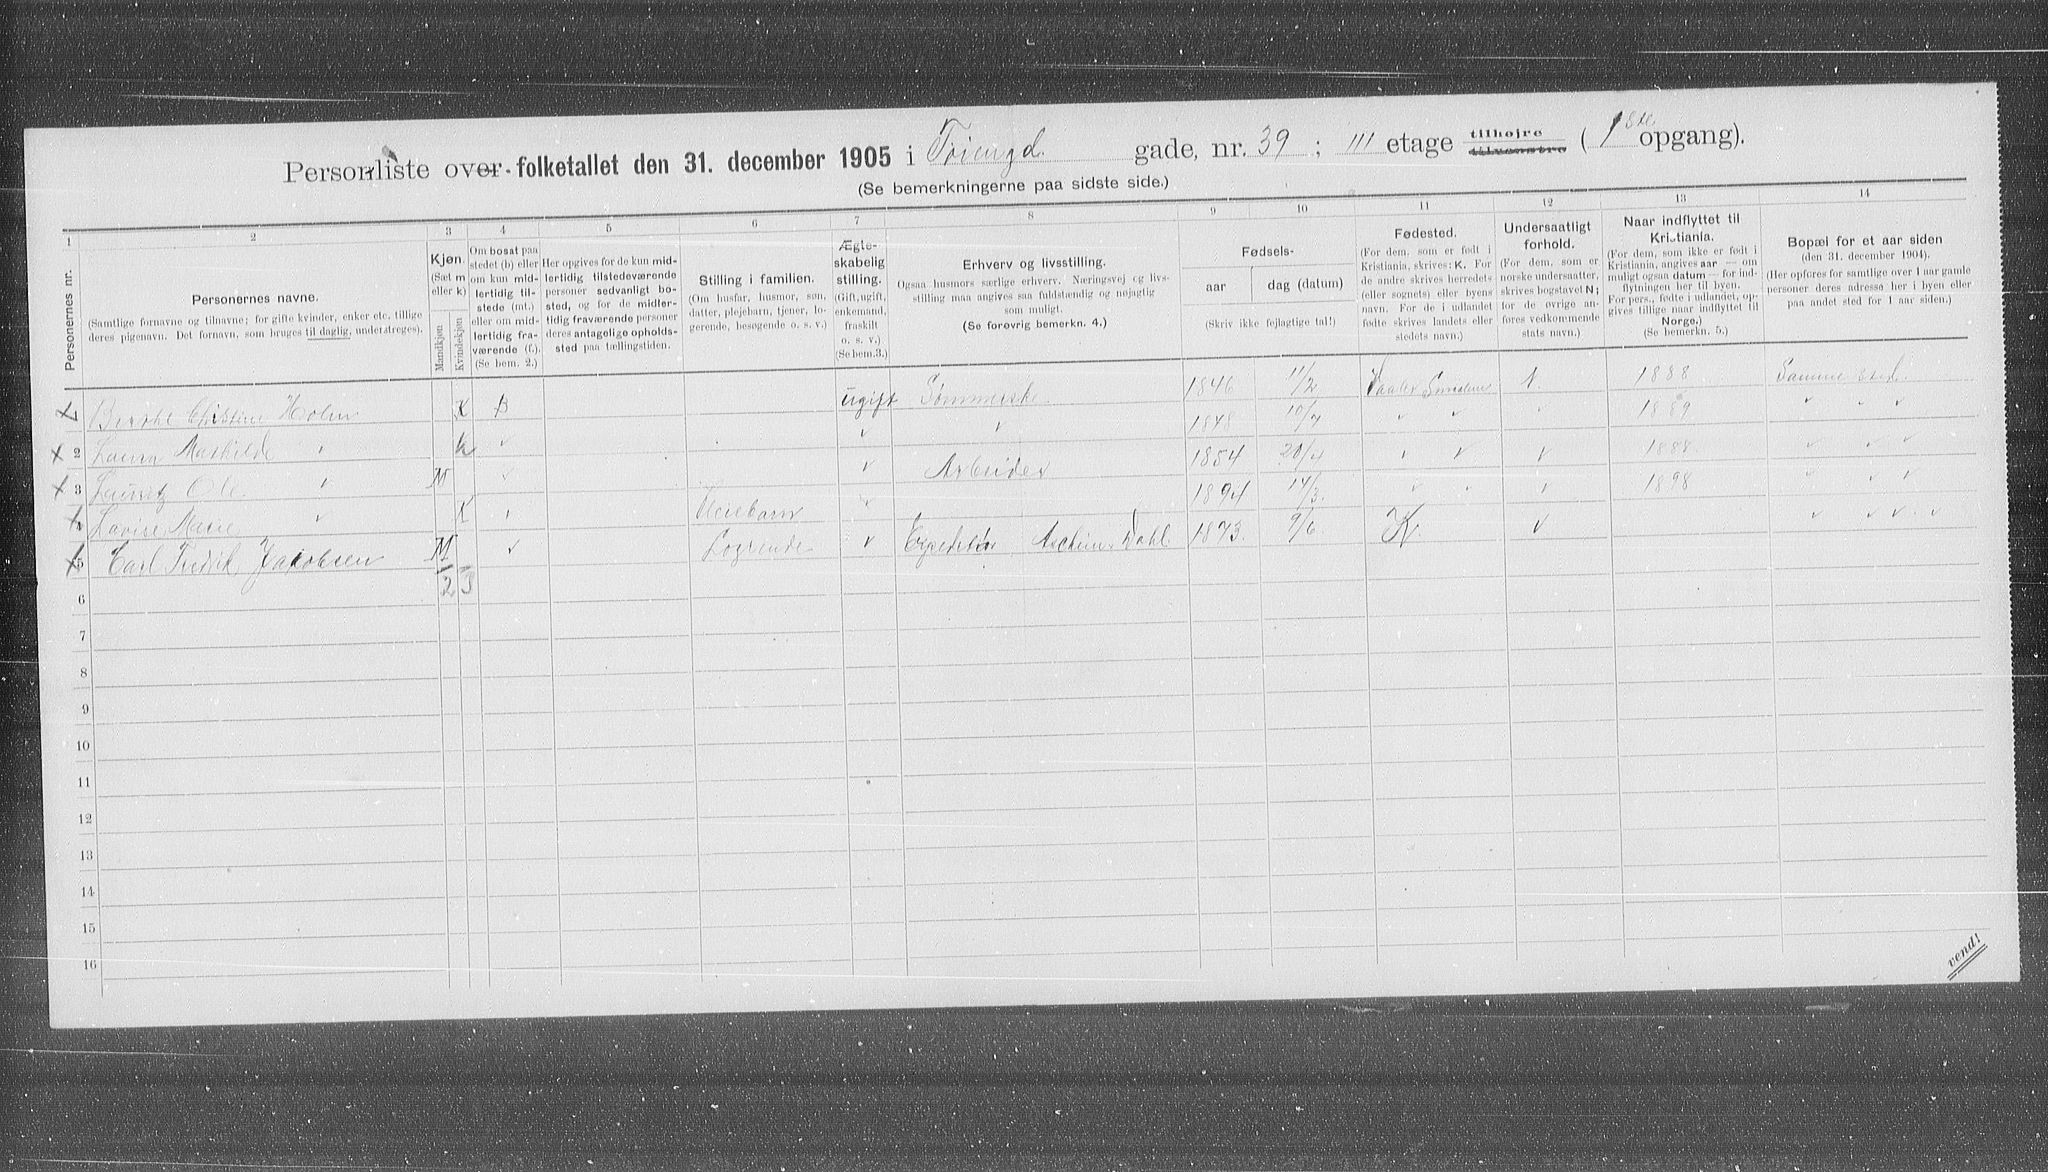 Personliste over folketallet den 31. december 1905 i gade, nr. 39 ; III etage tilhøjre tilvenstre ( 1ste opgang).
(Se bemerkningerne paa sidste side.)
1 2 3 4 5 6 7 8 9 10 11 12 13 14
Personernes nr.
Personernes navne.
(Samtlige fornavne og tilnavne; for gifte kvinder, enker etc. tillige
deres pigenavn. Det fornavn, som bruges til daglig, understreges).
Kjøn.
(Sæt m
eller k)
Mandkjøn
Kvindekjøn
Om bosat paa
stedet (b) eller
om kun mid-
lertidig til-
stede (mt.)
eller om mid-
lertidig fra-
værende (f.).
(Se bem. 2.)
Her opgives for de kun mid-
lertidig tilstedeværende
personer sedvanligt bo-
sted, og for de midler-
tidig fraværende personer
deres antagelige opholds-
sted paa tællingstiden.
Stilling i familien.
(Om husfar, husmor, søn,
datter, plejebarn, tjener, lo-
gerende, besøgende o. s. v.)
Ægte-
skabelig
stilling.
(Gift, ugift,
enkemand,
fraskilt
o. s. v.)
(Se bem.3.)
Erhverv og livsstilling.
Ogsaa husmors særlige erhverv. Næringsvej og livs-
stilling maa angives saa fuldstændig og nøjagtig
som muligt.
(Se forøvrig bemerkn. 4.)
Fødsels-
aar dag (datum)
(Skriv ikke fejlagtige tal!)
Fødested.
(For dem, som er født i
Kristiania, skrives: K. For
de andre skrives herredets
(eller sognets) eller byens
navn. For de i udlandet
fødte skrives landets eller
stedets navn.)
Undersaatligt
forhold.
(For dem, som er
norske undersaatter,
skrives bogstavet N;
for de øvrige an-
føres vedkommende
stats navn.)
Naar indflyttet til
Kristiania.
(For dem, som ikke er født i
Kristiania, angives aar — om
muligt ogsaa datum — for ind-
flytningen her til byen.
For pers., fødte i udlandet, op-
gives tillige naar indflyttet til
Norge.)
(Se bemerkn. 5.)
Bopæl for et aar siden
(den 31. december 1904).
(Her opføres for samtlige over 1 aar gamle
personer deres adresse her i byen eller
paa andet sted for 1 aar siden.)
Berthe Christine Holm K B ugift Sømmerske 1846 11/2 Vaaler Smaalene N. 1888 Samme sted
2 Laura Mathilde " k " " " 1848 10/7 " " " 1889 " " "
3 Lauritz Ole " M " " Arbeider 1854 20/4 " " " 1888 " " "
4 Lovise Marie " K " Pleiebarn " 1894 14/3. " " " 1898 " " "
5 Carl Fredrik Jacobsen M " Logerende " Expeditør 1873. 9/6 K. " " " " "
2 3
6
7
8
9
10
11
12
13
14
15
16
vend!